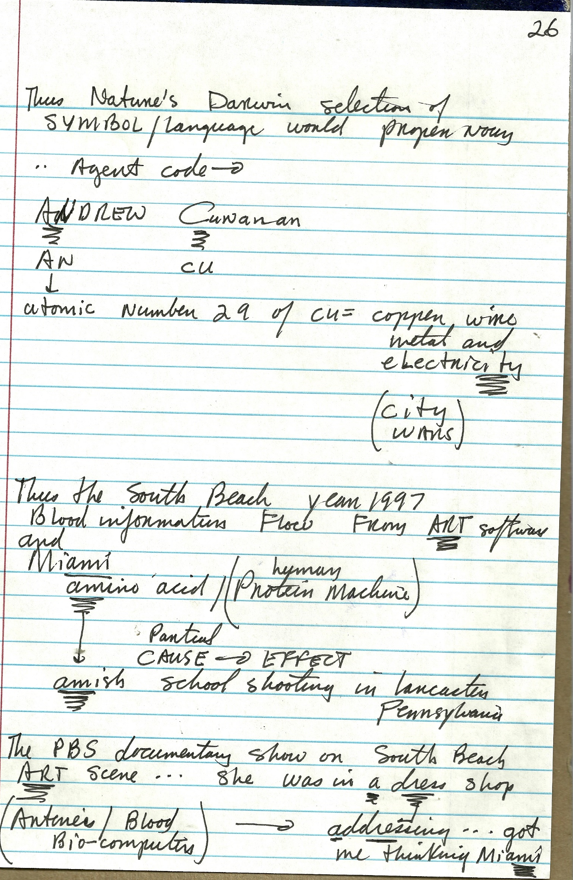 26
Thus Nature's Darwin selection of
SYMBOL/language would proper nouns
.. Agent code→
ANDREW Cunanan
AN CU
↓
atomic number 29 of CU = copper wire
metal and
electricity
(city
wars)
Thus the South Beach year 1997
Blood information Flow From ART software
and
Miami
amino acid / (human
Protein Machine)
Partial
CAUSE → EFFECT
↓
amish school shooting in Lancaster
Pennsylvania
The PBS documentary show on South Beach
ART scene ... she was in a dress shop
(Arteries / Blood
Bio-computers) → addressing ... got
me thinking Miami